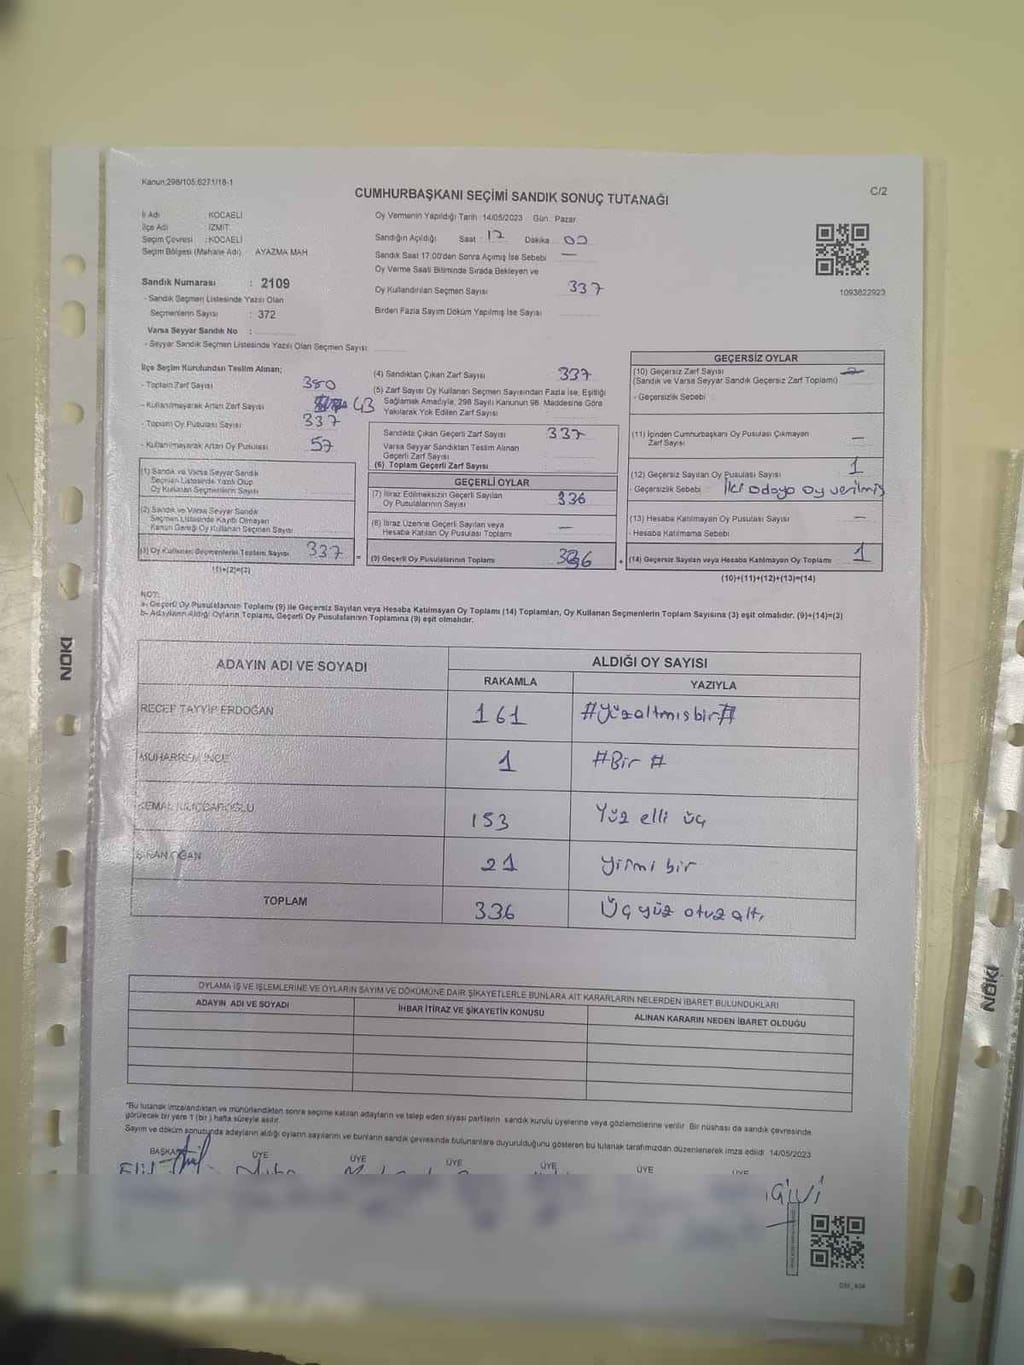 Kanun:298/105,6271/18-1
CUMHURBAŞKANI SEÇİMİ SANDIK SONUÇ TUTANAĞI
C/2
İl Adı KOCAELİ
İlçe Adı İZMİT
Seçim Çevresi :KOCAELİ
Seçim Bölgesi (Mahalle Adı) AYAZMA MAH
Oy Vermenin Yapıldığı Tarih 14/05/2023 Gün Pazar
Sandığın Açıldığı Saat 17 Dakika 00
Sandık Saat 17:00'den Sonra Açımış İse Sebebi —
Oy Verme Saati Bitiminde Sırada Bekleyen ve
Oy Kullandırılan Seçmen Sayısı 337
Birden Fazla Sayım Döküm Yapılmış İse Sayısı
1093822923
Sandık Numarası : 2109
- Sandık Seçmen Listesinde Yazılı Olan
Seçmenlerin Sayısı : 372
Varsa Seyyar Sandık No :
- Seyyar Sandık Seçmen Listesinde Yazılı Olan Seçmen Sayısı
İlçe Seçim Kurulundan Teslim Alınan;
- Toplam Zarf Sayısı 380
- Kullanılmayarak Artan Zarf Sayısı 43
- Toplam Oy Pusulası Sayısı 337
- Kullanılmayarak Artan Oy Pusulası 57
(1) Sandık ve Varsa Seyyar Sandık
Seçmen Listesinde Yazılı Olup
Oy Kullanan Seçmenlerin Sayısı
(2) Sandık ve Varsa Seyyar Sandık
Seçmen Listesinde Kayıtlı Olmayan
Kanun Gereği Oy Kullanan Seçmen Sayısı
(3) Oy Kullanan Seçmenlerin Toplam Sayısı 337
(1)+(2)=(3)
(4) Sandıktan Çıkan Zarf Sayısı 337
(5) Zarf Sayısı Oy Kullanan Seçmen Sayısından Fazla İse, Eşitliği
Sağlamak Amacıyla, 298 Sayılı Kanunun 98. Maddesine Göre
Yakılarak Yok Edilen Zarf Sayısı
Sandıkta Çıkan Geçerli Zarf Sayısı 337
Varsa Seyyar Sandıktan Teslim Alınan
Geçerli Zarf Sayısı
(6) Toplam Geçerli Zarf Sayısı
GEÇERLİ OYLAR
(7) İtiraz Edilmeksizin Geçerli Sayılan
Oy Pusulalarının Sayısı 336
(8) İtiraz Üzerine Geçerli Sayılan veya
Hesaba Katılan Oy Pusulaları Toplamı —
(9) Geçerli Oy Pusulalarının Toplamı 336
GEÇERSİZ OYLAR
(10) Geçersiz Zarf Sayısı
(Sandık ve Varsa Seyyar Sandık Geçersiz Zarf Toplamı)
- Geçersizlik Sebebi
(11) İçinden Cumhurbaşkanı Oy Pusulası Çıkmayan
Zarf Sayısı —
(12) Geçersiz Sayılan Oy Pusulası Sayısı 1
- Geçersizlik Sebebi İki adaya oy verilmiş
(13) Hesaba Katılmayan Oy Pusulası Sayısı —
- Hesaba Katılmama Sebebi
(14) Geçersiz Sayılan veya Hesaba Katılmayan Oy Toplamı 1
(10)+(11)+(12)+(13)=(14)
NOT:
a- Geçerli Oy Pusulalarının Toplamı (9) ile Geçersiz Sayılan veya Hesaba Katılmayan Oy Toplamı (14) Toplamları, Oy Kullanan Seçmenlerin Toplam Sayısına (3) eşit olmalıdır. (9)+(14)=(3)
b- Adayların Aldığı Oyların Toplamı, Geçerli Oy Pusulalarının Toplamına (9) eşit olmalıdır.
ADAYIN ADI VE SOYADI
ALDIĞI OY SAYISI
RAKAMLA YAZIYLA
RECEP TAYYİP ERDOĞAN 161 #Yüzaltmışbir#
MUHARREM İNCE 1 #Bir #
KEMAL KILIÇDAROĞLU 153 Yüz elli üç
SİNAN OĞAN 21 Yirmi bir
TOPLAM 336 Üç yüz otuz altı
OYLAMA İŞ VE İŞLEMLERİNE VE OYLARIN SAYIM VE DÖKÜMÜNE DAİR ŞİKAYETLERLE BUNLARA AİT KARARLARIN NELERDEN İBARET BULUNDUKLARI
ADAYIN ADI VE SOYADI İHBAR İTİRAZ VE ŞİKAYETİN KONUSU ALINAN KARARIN NEDEN İBARET OLDUĞU
"Bu tutanak imzalandıktan ve mühürlendikten sonra seçime katılan adayların ve talep eden siyasi partilerin sandık kurulu üyelerine veya gözlemcilerine verilir. Bir nüshası da sandık çevresinde
görülecek bir yere 1 (bir) hafta süreyle asılır.
Sayım ve döküm sonucunda adayların aldığı oyların sayılarını ve bunların sandık çevresinde bulunanlara duyurulduğunu gösteren bu tutanak tarafımızdan düzenlenerek imza edildi 14/05/2023
BAŞKAN ÜYE ÜYE ÜYE ÜYE ÜYE ÜYE
NOKI
NOKI